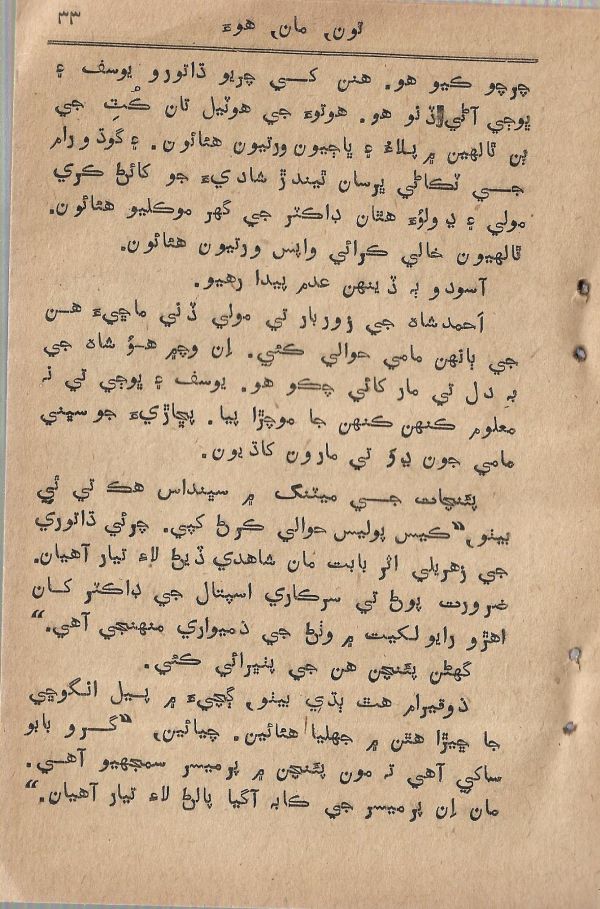 ٣٣
تون، مان، هوءَ
چرچو ڪيو هو. هنن ڪسي چريو ڌاتورو يوسف ۽
ڀوجي آڻي ڏنو هو. هوتوءَ جي هوٽيل تان ڪُٽِ جي
ٻن ٿالهين ۾ پلاءُ ۽ ڀاڄيون ورتيون هئائون. ۽ گوڏ و رام
جسي ٽڪاڻي ڀرسان ٿيندڙ شاديءَ جو کائڻ ڪري
مولي ۽ ڍولؤءَ هٿان ڊاڪٽر جي گهر موڪليو هئائون.
ٿالهيون خالي ڪرائي واپس ورتيون هئائون.
آسودو بہ ڏينهن عدم پيدا رهيو.
اَحمد شاه جي زور بار تي مولي ڏني ماڇيءَ هسن
جي ٻانهن مامي حوالي ڪئي. اِن وچ ۾ هؤ شاه جي
بہ دل تي مار کائي چڪو هو. يوسف ۽ ڀوجي تي نہ
معلوم ڪنهن ڪنهن جا موچڙا پيا. پڇاڙيءَ جو سڀني
مامي جون ڍؤ تي مارون کاڌيون.
پئنچات جسي ميٽنگ ۾ سينداس هڪ ٿي ٿي
بيٺو، ”ڪيس پوليس حوالي ڪرڻ کپي. چرئي ڌاتوري
جي زهريلي اثر بابت مان شاهدي ڏيڻ لاءِ تيار آهيان.
ضرورت پوڻ تي سرڪاري اسپتال جي ڊاڪٽر کان
اهڙو رايو لکيت ۾ وٺڻ جي ذميواري منهنجي آهي.“
گهڻن پئنچن هن جي پٺڀرائي ڪئي.
ذوقيرام هٿ ٻڌي بيٺو، ڳچيءَ ۾ پيل انگوڇي
جا ڇيڙا هٿن ۾ جهليا هئائين. چيائين، ”گرو بابو
ساکي آهي تہ مون پئنچن ۾ پرميسر سمجهيو آهي.
مان اِن پرميسر جي ڪابہ آگيا پالڻ لاءِ تيار آهيان.“